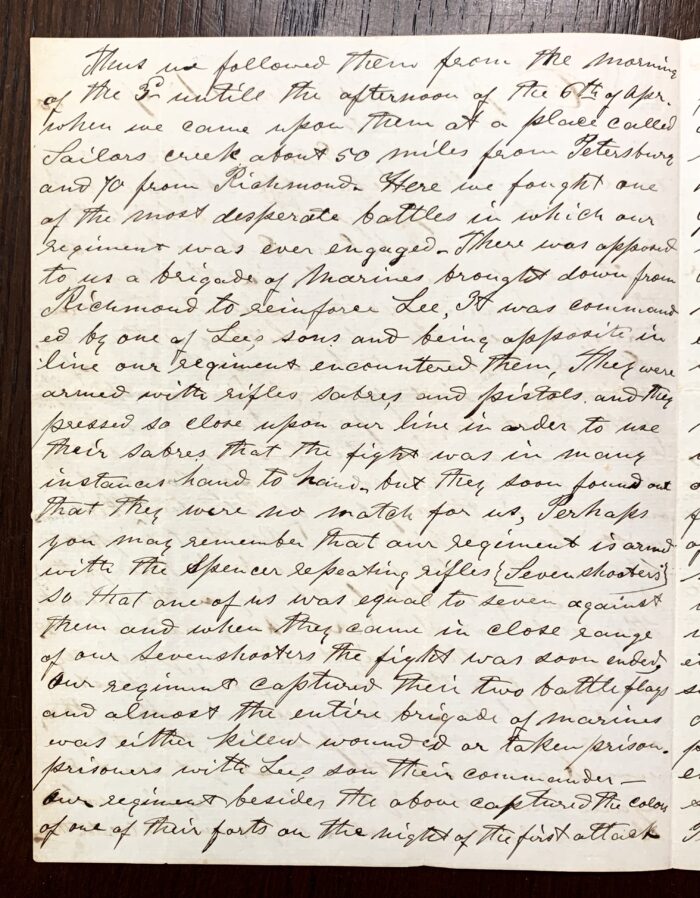 Thus we followed them from the morning
of the 3d untill the afternoon of the 6th of Apr.
when we came upon them at a place called
Sailors creek about 50 miles from Petersburg
and 70 from Richmond. Here we fought one
of the most desperate battles in which our
regiment was ever engaged - There was opposed
to us a brigade of Marines brought down from
Richmond to reinforce Lee, It was command
ed by one of Lees sons and being opposite in
line our regiment encountered them, They were
armed with rifles sabres and pistols, and they
pressed so close upon our line in order to use
their sabres that the fight was in many
instances hand to hand, but they soon found out
that they were no match for us, Perhaps
you may remember that our regiment is armed
with the Spencer repeating rifles {Sevenshooters}
so that one of us was equal to seven against
them and when they came in close range
of our Sevenshooters the fight was soon ended,
Our regiment captured their two battle flags
and almost the entire brigade of marines
was either killed wounded or taken prison.
prisoners with Lees son their commander —
Our regiment besides the above captured the colors
of one of their forts on the night of the first attack